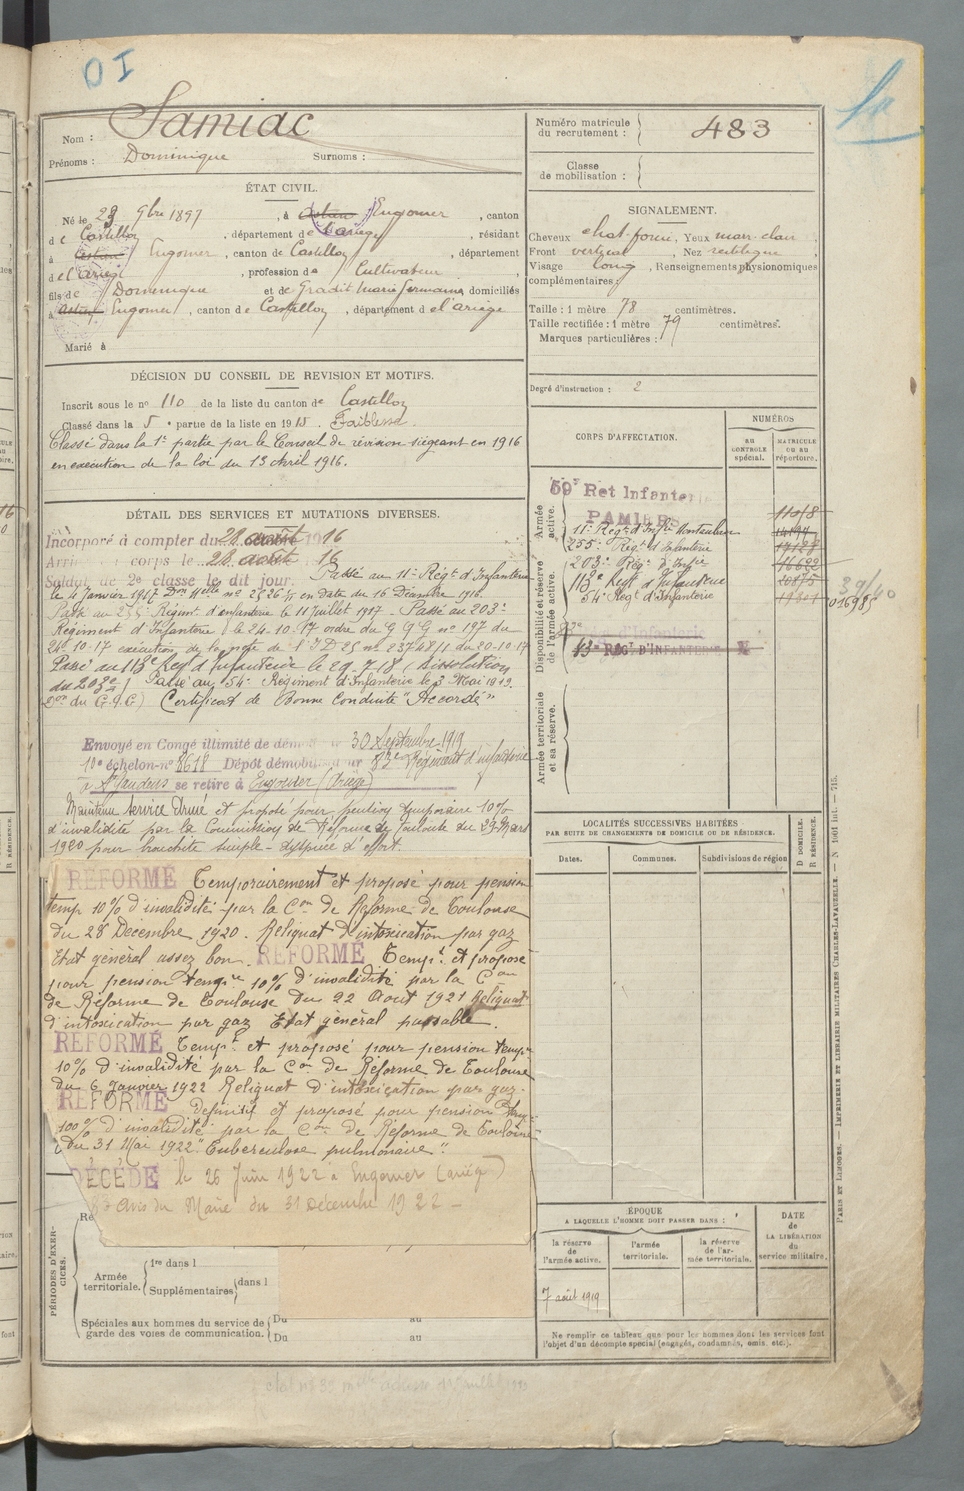 O I
Nom : Samiac
Prénoms : Dominique Surnoms :
ÉTAT CIVIL.
Né le 23 9bre 1897, à Engomer, canton
de Castillon, département de l'ariège, résidant
à Engomer, canton de Castillon, département
de l'ariège, profession de Cultivateur,
fils de Dominique et de Gradit Marie Germaine domiciliés
à Engomer, canton de Castillon, département de l'ariège
Marié à
DÉCISION DU CONSEIL DE REVISION ET MOTIFS.
Inscrit sous le n° 110 de la liste du canton de Castillon
Classé dans la 5e partie de la liste en 1915. Faiblesse
Classé dans la 1e partie par le Conseil de révision siégeant en 1916
en exécution de la loi du 13 Avril 1916.
DÉTAIL DES SERVICES ET MUTATIONS DIVERSES.
Incorporé à compter du 28 août 1916
Arrivé au corps le 28 août 16
Soldat de 2e classe le dit jour. Passé au 11e Régt d'Infanterie
le 4 Janvier 1917 en date du 16 Décembre 1916
Passé au 255e Régiment d'infanterie le 11 juillet 1917. Passé au 203e
Régiment d'Infanterie le 24-10-17 ordre du G Q G n° 197 du
20-10-17 exécution de la note de l'I D 25 n° 23748/1 du 20-10-17
Passé au 113e Reg d'Infanterie le 29-7-18 (Dissolution
du 203e) Passé au 54e Régiment d'Infanterie le 3 Mai 1919.
(Don du G.Q.G) Certificat de Bonne Conduite "Accordé"
Envoyé en Congé illimité de démob le 30 Septembre 1919
10e échelon-n° 8618 Dépôt démobilisateur 83e Régiment d'infanterie
à St Gaudens se retire à Engomer (Ariège)
Maintenu service Armé et proposé pour pension temporaire 10%
d'invalidité par la Commission de Réforme de Toulouse du 29 Mars
1920 pour bronchite simple - dyspnée d'effort.
RÉFORMÉ Temporairement et proposé pour pension
temp 10% d'invalidité par la Con de Réforme de Toulouse
du 28 Décembre 1920. Reliquat d'intoxication par gaz
Etat général assez bon. RÉFORMÉ Tempt et proposé
pour pension tempre 10% d'invalidité par la Con
de Réforme de Toulouse du 22 Aout 1921 Reliquat
d'intoxication par gaz Etat général passable.
RÉFORMÉ Tempt et proposé pour pension tempre
10% d'invalidité par la Con de Réforme de Toulouse
du 6 Janvier 1922 Reliquat d'intoxication par gaz.
RÉFORMÉ Definitif et proposé pour pension
100% d'invalidité par la Con de Réforme de Toulouse
du 31 Mai 1922 "Tuberculose pulmonaire".
DÉCÉDÉ le 26 Juin 1922 à Engomer (ariège)
Avis du Maire du 31 Décembre 1922 -
PÉRIODES D'EXERCICES.
Armée territoriale.
1re dans l
Supplémentaires dans l
Spéciales aux hommes du service de
garde des voies de communication.
Du au
Du au
Numéro matricule
du recrutement : 483
Classe
de mobilisation :
SIGNALEMENT.
Cheveux chat. foncé, Yeux marr. clair,
Front vertical, Nez rectiligne,
Visage long, Renseignements physionomiques
complémentaires :
Taille : 1 mètre 78 centimètres.
Taille rectifiée : 1 mètre 79 centimètres.
Marques particulières :
Degré d'instruction : 2
CORPS D'AFFECTATION.
NUMÉROS
AU CONTRÔLE spécial.
MATRICULE OU AU répertoire.
Armée active.
Disponibilité et réserve de l'armée active.
Armée territoriale et sa réserve.
59e Ret Infanterie
PAMIERS
11e Régt d'Infie Montauban
255e Regt d'Infanterie
203e Régt d'Infie
113e Regt d'Infanterie
54e Regt d'Infanterie
016985
RÉGt D'INFANTERIE
LOCALITÉS SUCCESSIVES HABITÉES
PAR SUITE DE CHANGEMENTS DE DOMICILE OU DE RÉSIDENCE.
Dates.
Communes.
Subdivisions de région
D DOMICILE.
R RÉSIDENCE.
ÉPOQUE
A LAQUELLE L'HOMME DOIT PASSER DANS :
la réserve de l'armée active.
l'armée territoriale.
la réserve de l'armée territoriale.
DATE de LA LIBÉRATION du service militaire.
7 août 1919
Ne remplir ce tableau que pour les hommes dont les services font
l'objet d'un décompte spécial (engagés, condamnés, omis, etc.).
PARIS ET LIMOGES. — IMPRIMERIE ET LIBRAIRIE MILITAIRES CHARLES-LAVAUZELLE. — N 1001 int. — 715.